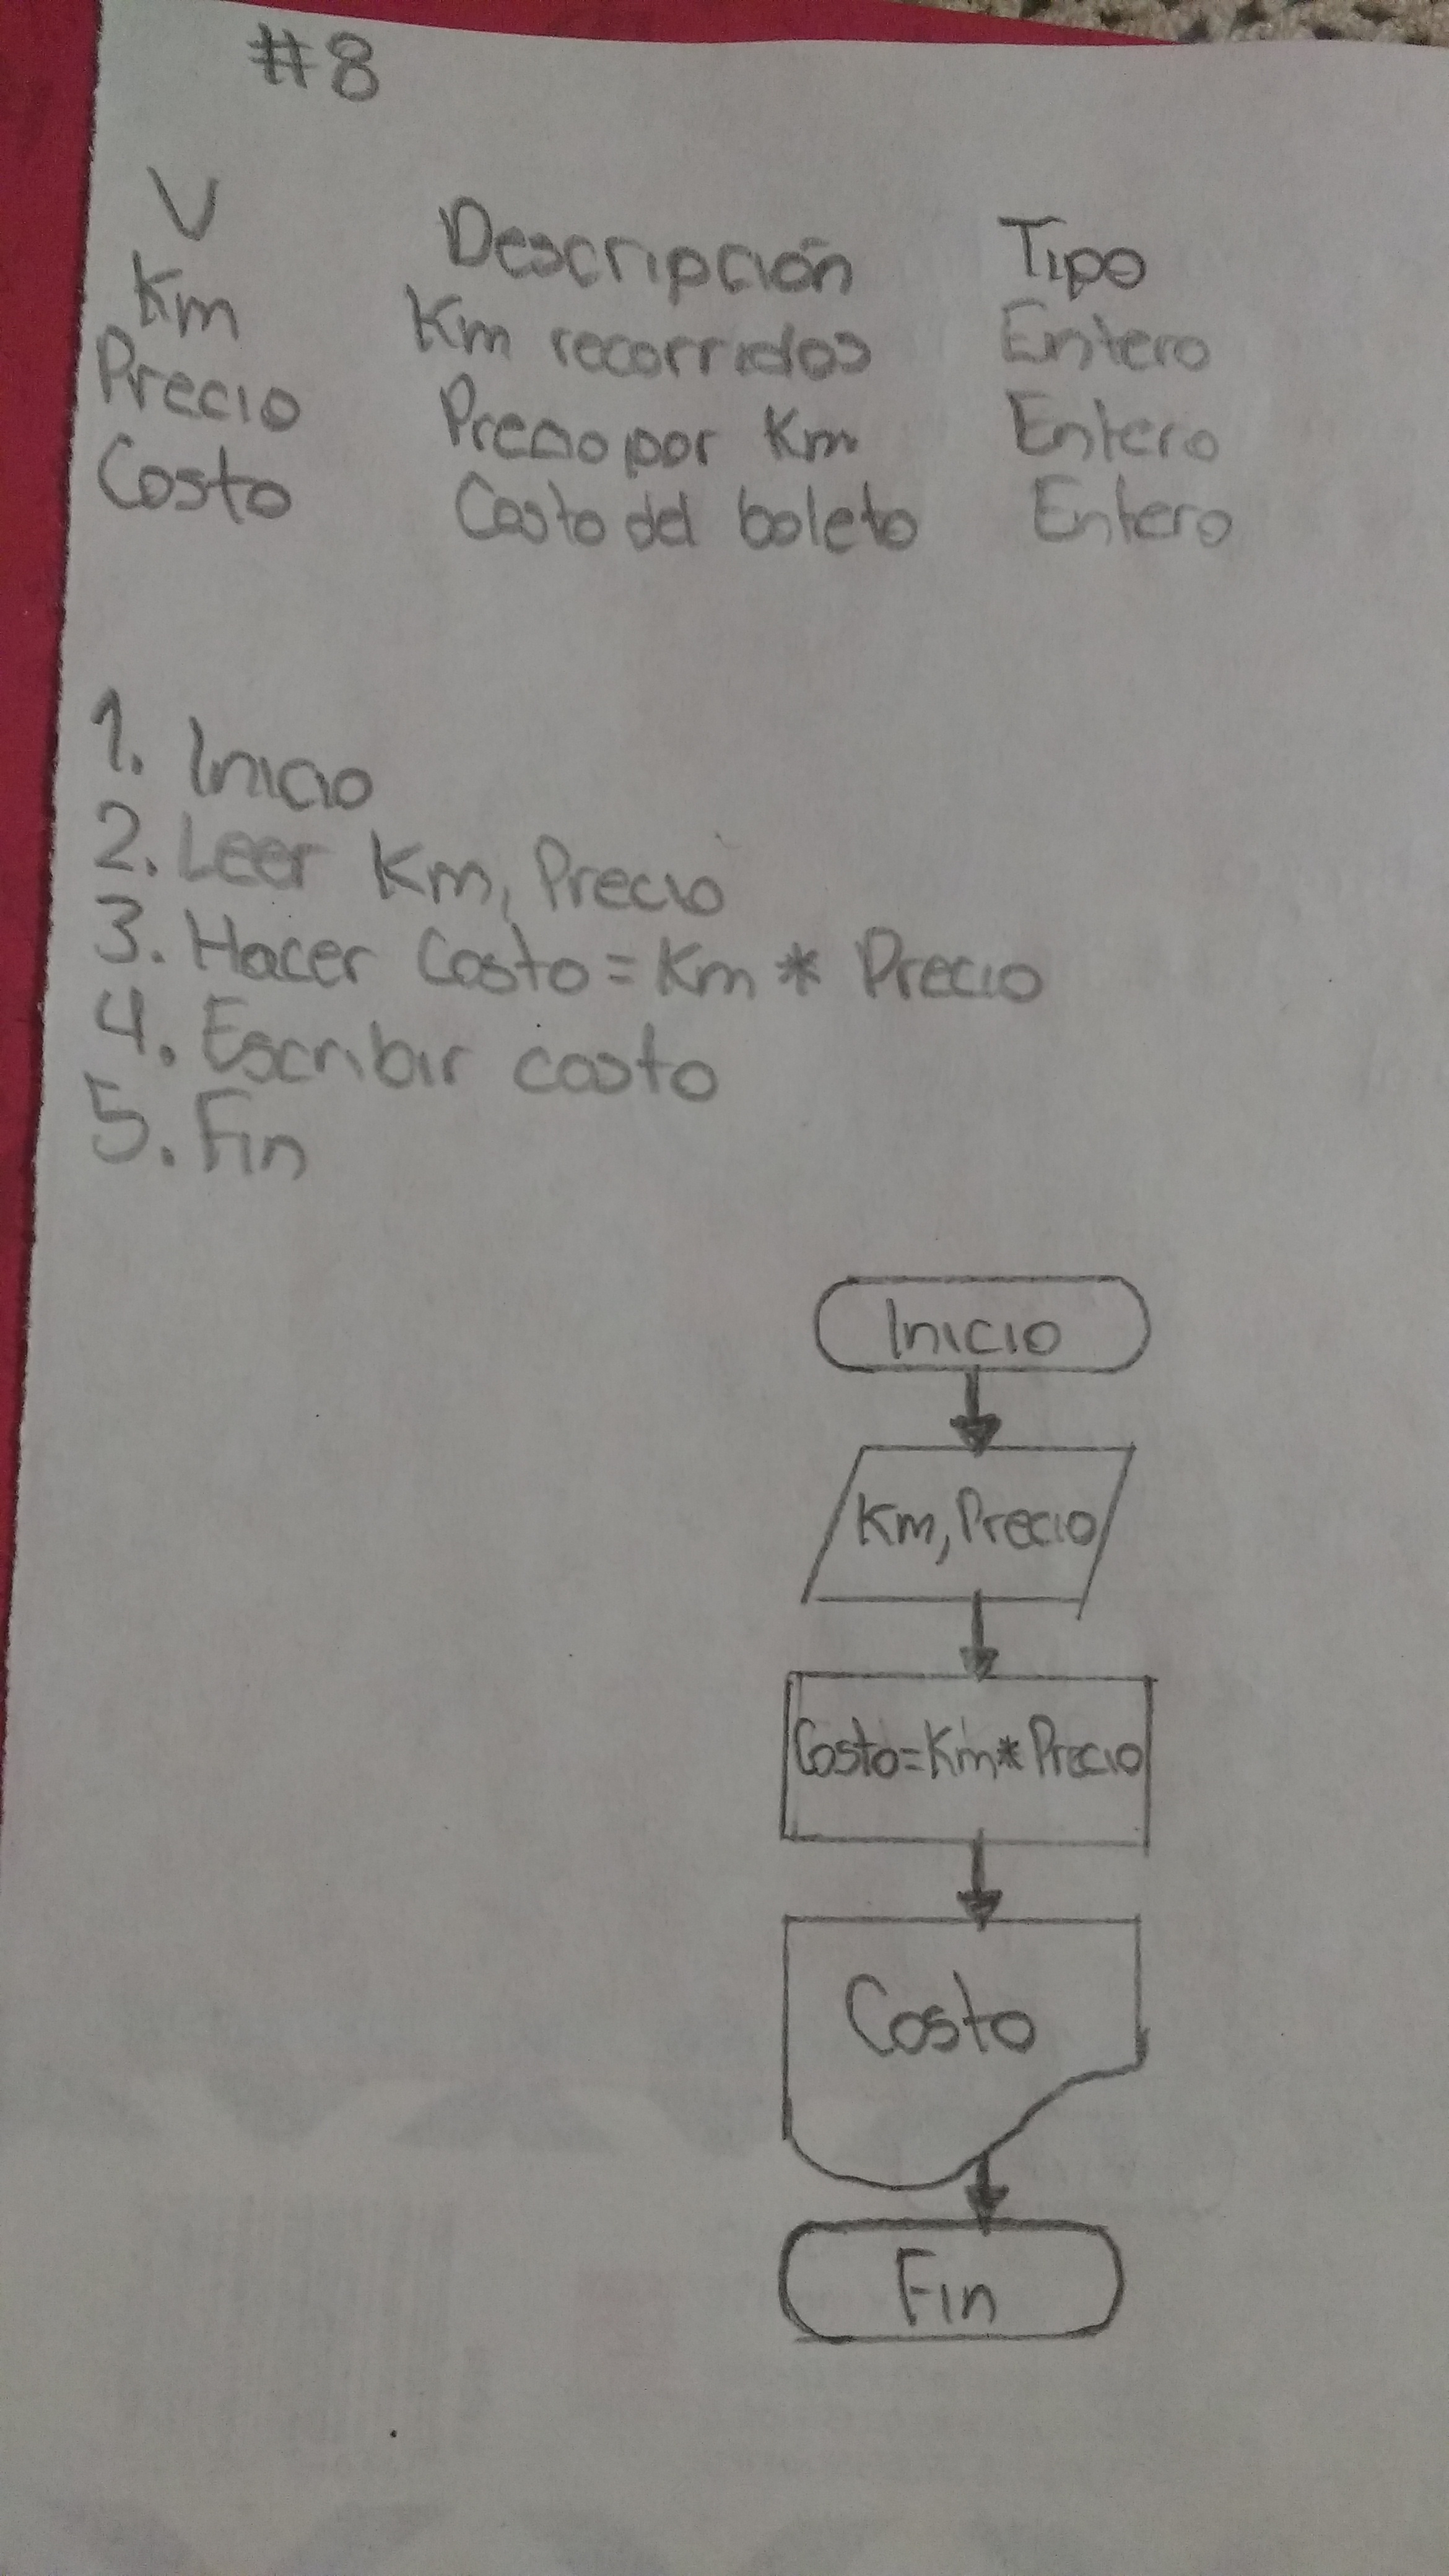 #8
V Descripción Tipo
Km Km recorridos Entero
Precio Precio por Km Entero
Costo Costo del boleto Entero
1. Inicio
2. Leer Km, Precio
3. Hacer Costo = Km * Precio
4. Escribir costo
5. Fin
Inicio
Km, Precio
Costo=Km*Precio
Costo
Fin